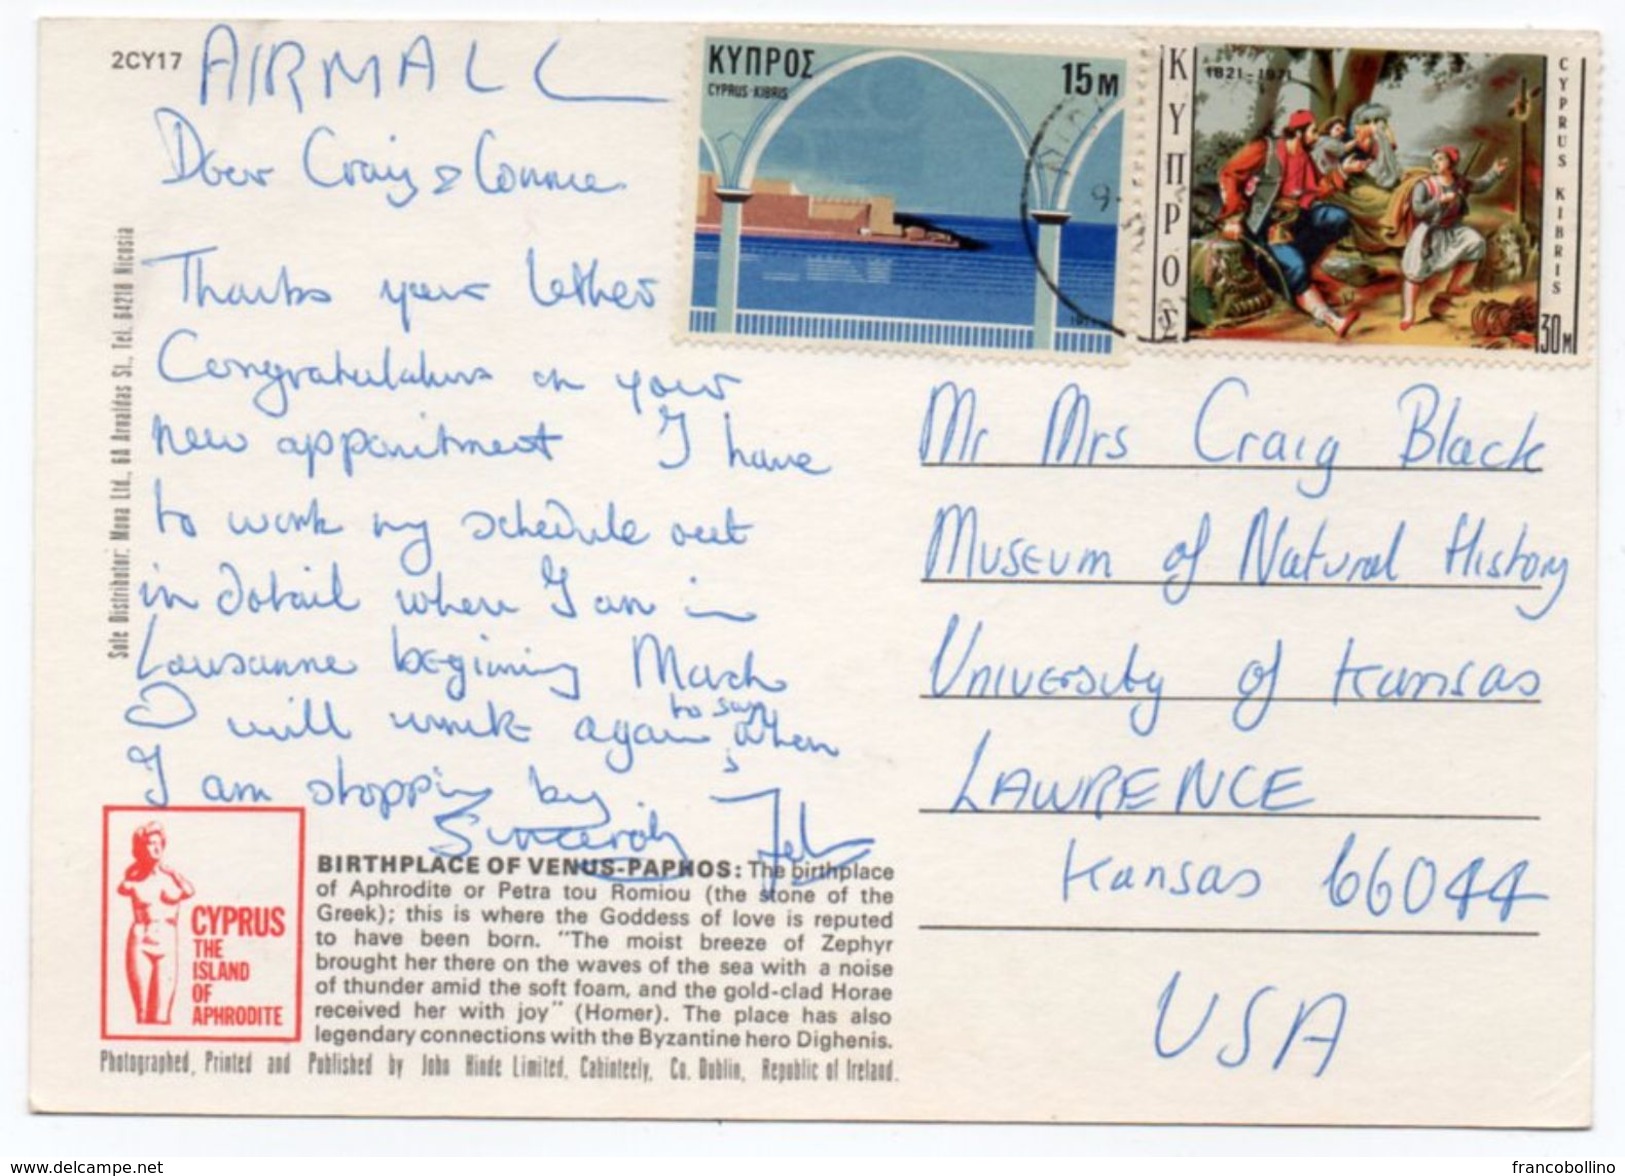 2CY17
AIRMAIL
Dear Craig & Connie
Thanks your letter
Congratulations on your
new appointment I have
to work my schedule out
in detail where I am in
Lausanne begining March
I will write again to say when
I am stopping by.
Sincerely
Sole Distributor: Mona Ltd., 6A Arnaldas St., Tel. 64218 Nicosia
CYPRUS
THE
ISLAND
OF
APHRODITE
BIRTHPLACE OF VENUS-PAPHOS: The birthplace
of Aphrodite or Petra tou Romiou (the stone of the
Greek); this is where the Goddess of love is reputed
to have been born. "The moist breeze of Zephyr
brought her there on the waves of the sea with a noise
of thunder amid the soft foam, and the gold-clad Horae
received her with joy" (Homer). The place has also
legendary connections with the Byzantine hero Dighenis.
Photographed, Printed and Published by John Hinde Limited, Cabinteely, Co. Dublin, Republic of Ireland.
ΚΥΠΡΟΣ
CYPRUS·KIBRIS
15 M
1971
ΚΥΠΡΟΣ
1821-1971
CYPRUS KIBRIS
30 M
Mr Mrs Craig Black
Museum of Natural History
University of Kansas
LAWRENCE
Kansas 66044
USA
www.delcampe.net
francobollino